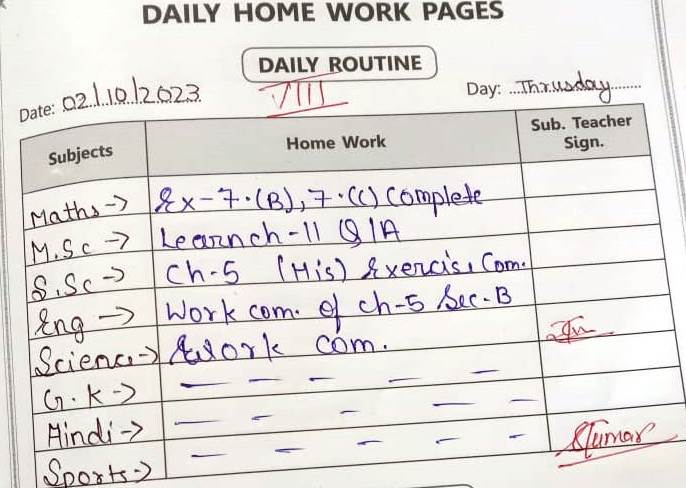 DAILY HOME WORK PAGES
DAILY ROUTINE
Date: 02/10/2023 VIII Day: Thrusday
Subjects Home Work Sub. Teacher Sign.
Maths-> Ex-7.(B), 7.(C) Complete
M.Sc -> Learn ch-11 Q/A
S.Sc -> Ch-5 (His) Exercise Com.
Eng -> Work com. of ch-5 Sec-B
Science-> Work com.
G.K->
Hindi->
Sports-> Kumar